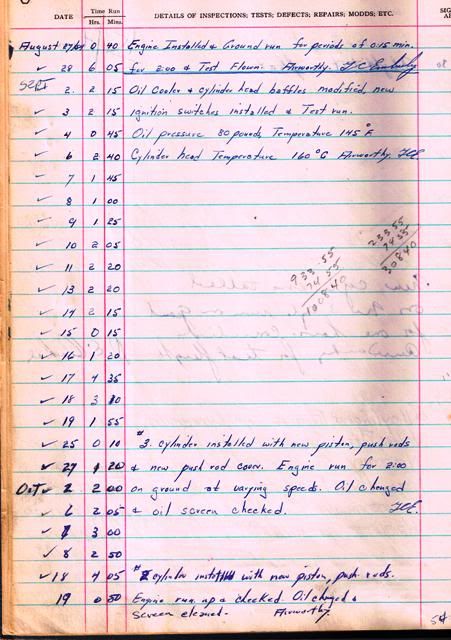 Time Run DETAILS OF INSPECTIONS; TESTS; DEFECTS; REPAIRS; MODDS; ETC. SIG
Hrs. Mins.
August 27/ 0 40 Engine Installed & Ground run for periods of 0:15 min.
✓ 28 6 05 for 2:00 & Test Flown. Airworthy.
SEPT 2. 2 15 Oil Cooler & cylinder head baffles modified, new
✓ 3 2 15 ignition switches installed & Test run.
✓ 4 0 45 Oil pressure 80 pounds, Temperature 145°F
✓ 6 2 40 Cylinder head Temperature 160°C Airworthy.
✓ 7 1 45
✓ 8 1 00
✓ 9 1 25
✓ 10 2 05
✓ 11 2 20
✓ 13 2 20
✓ 14 2 15
✓ 15 0 15
✓ 16 1 20
✓ 17 4 35
✓ 18 3 10
✓ 19 1 55
933.55
74 55
1008 40
233 55
74 55
308 40
✓ 25 0 10 #3. cylinder installed with new piston, push rods
✓ 27 1 20 & new push rod cover. Engine run for 2:00
OCT ✓ 2 2 00 on ground at varying speeds. Oil changed
✓ 6 2 05 & oil screen checked.
✓ 7 3 00
✓ 8 2 50
✓ 18 4 05 #2 cylinder with new piston, push rods.
19 0 50 Engine run up & checked. Oil changed &
screen cleaned. Airworthy.